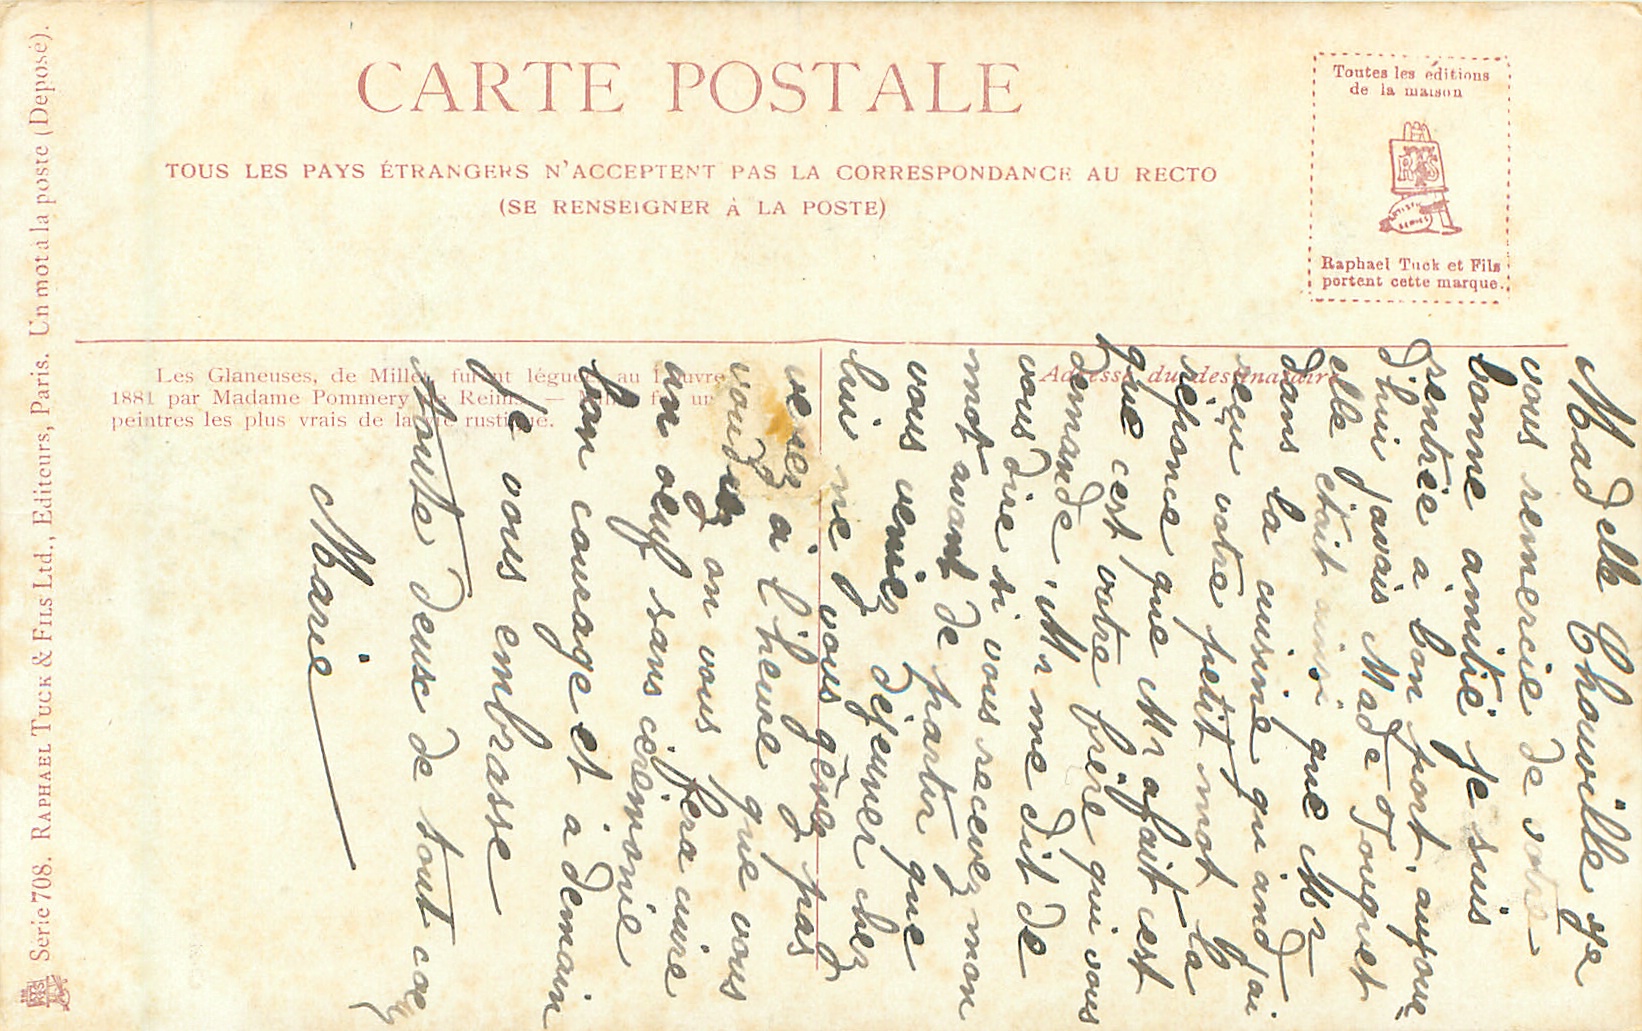 CARTE POSTALE
TOUS LES PAYS ÉTRANGERS N'ACCEPTENT PAS LA CORRESPONDANCE AU RECTO
(SE RENSEIGNER À LA POSTE)
Toutes les éditions
de la maison
ARTISTIC
SERIES
Raphael Tuck et Fils
portent cette marque.
Serie 708. RAPHAEL TUCK & FILS Ltd., Editeurs, Paris. Un mot a la poste (Deposé).
Les Glaneuses, de Millet, furent léguées au Louvre
1881 par Madame Pommery de Reims. — Millet fut un
peintres les plus vrais de la vie rustique.
Adresse du destinataire
Madelle Chouville je
vous remercie de votre
bonne amitié je suis
rentrée a bon port, aujour
d'hui j'avais Made Touquet
elle était ainsi que Mr
dans la cuisine quand j'ai
reçu votre petit mot la
réponce que Mr a fait c'est
que c'est votre frère qui vous
demande, Mr me dit de
vous dire si vous recevez mon
mot avant de partir que
vous veniez déjeuner chez
lui ne vous gênez pas
venez à l'heure que vous
voudrez on vous fera cuire
un oeuf sans cérémonie
bon courage et a demain
Je vous embrasse
toute deux de tout coe
Marie